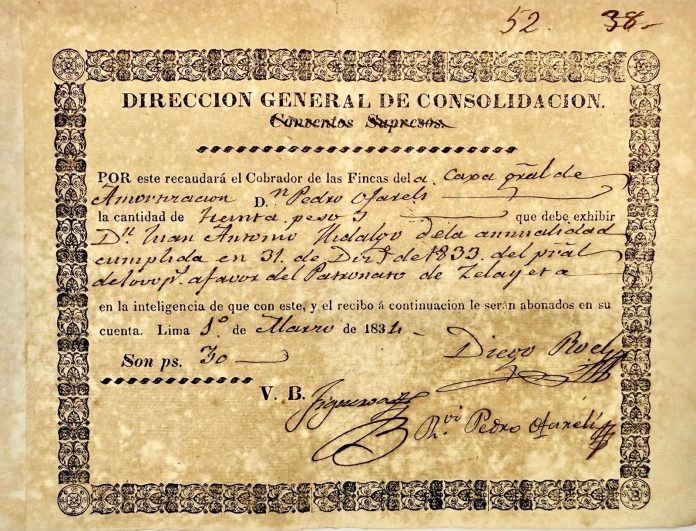 52. 38-
DIRECCION GENERAL DE CONSOLIDACION.
Conventos Supresos.
POR este recaudará el Cobrador de las Fincas del a. Caxa gral de
Amortizacion D.n Pedro Ofareli
la cantidad de treinta pesos que debe exhibir
D.n Juan Antonio Hidalgo dela annualidad
cumplida en 31. de Diz.e de 1833. del pral
de 1000 p.s a favor del Patronato de Zelayeta
en la inteligencia de que con este, y el recibo á continuacion le serán abonados en su
cuenta. Lima 1.o de Marzo de 1834.
Son ps. 30
Diego Roel
V. B.
Figueroa
R.vi Pedro Ofareli